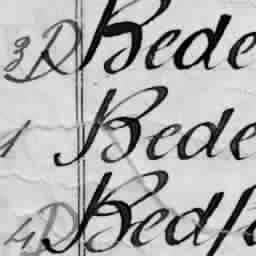 3 D Bede
1 Bede
4 D Bedf